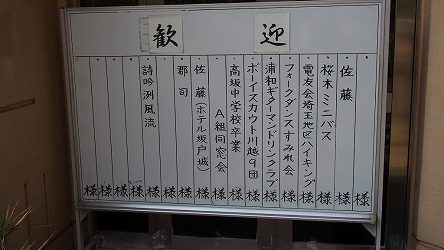 歓迎
様
佐藤 様
桜木ミニバス 様
電友会埼玉地区ハイキング 様
フォークダンスすみれ会 様
浦和ギターマンドリンクラブ 様
ボーイスカウト川越9団 様
高坂中学校卒業 様
A組同窓会 様
佐藤(ホテル坂戸城) 様
郡司 様
様
詩吟洌風流 様
様
様
様